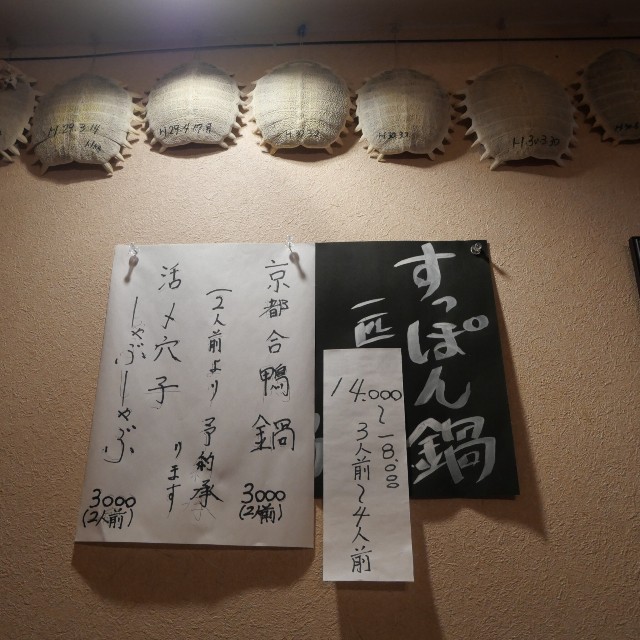 H.29.3.14
H29.4.17.8
H.30.3.3
H30.3.3
H.30.3.30
すっぽん鍋
一匹
14.000〜18000
3人前〜4人前
京都合鴨鍋
3000
(2人前)
(2人前より予約承
ります
活〆穴子
しゃぶしゃぶ
3000
(2人前)